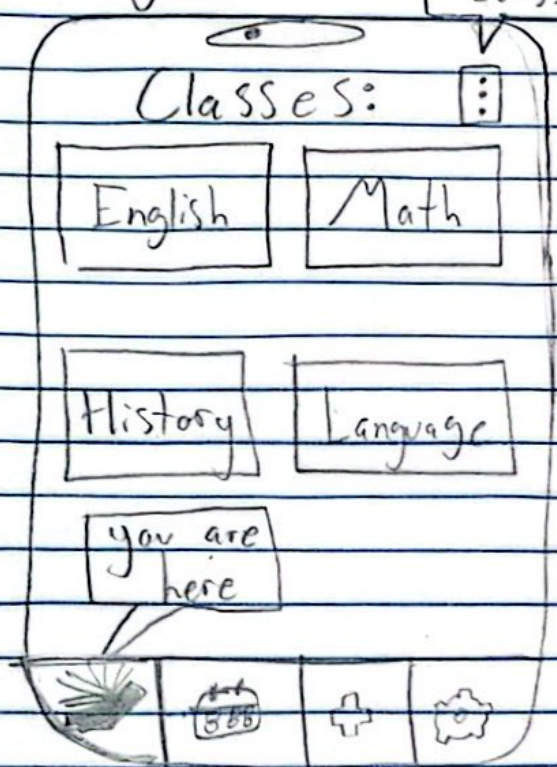 Classes:
English Math
History Language
you are
here